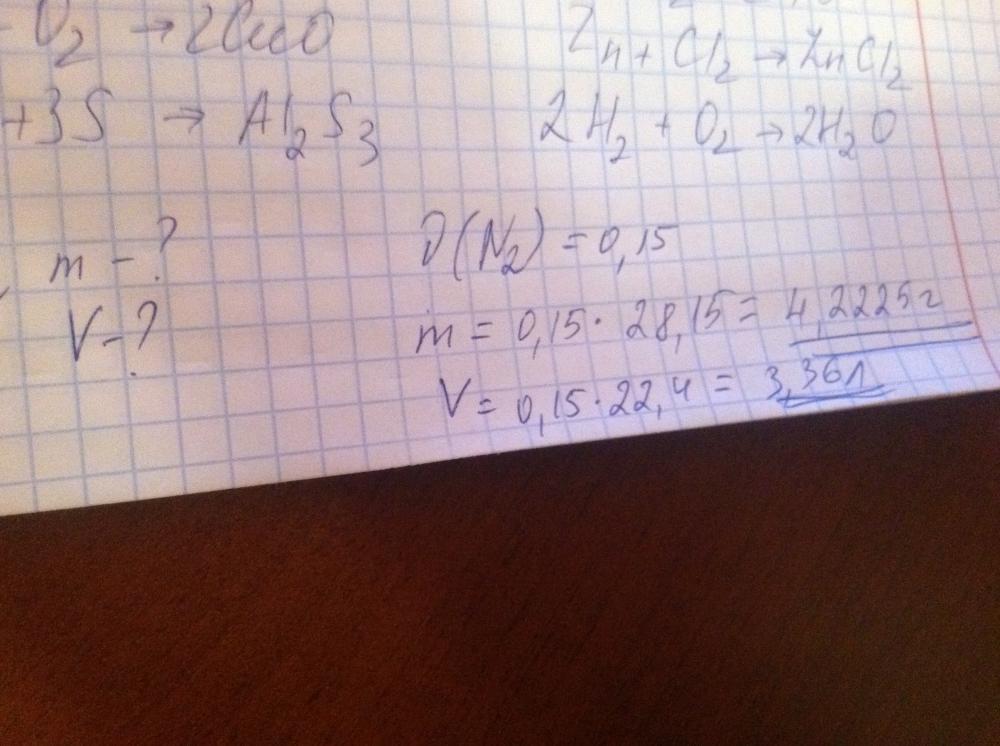 O₂ → 2CuO Zn + Cl₂ → ZnCl₂
+3S → Al₂S₃ 2H₂ + O₂ → 2H₂O
m - ? ϑ(N₂) = 0,15
V - ? m = 0,15 · 28,15 = 4,2225г
V = 0,15 · 22,4 = 3,36л